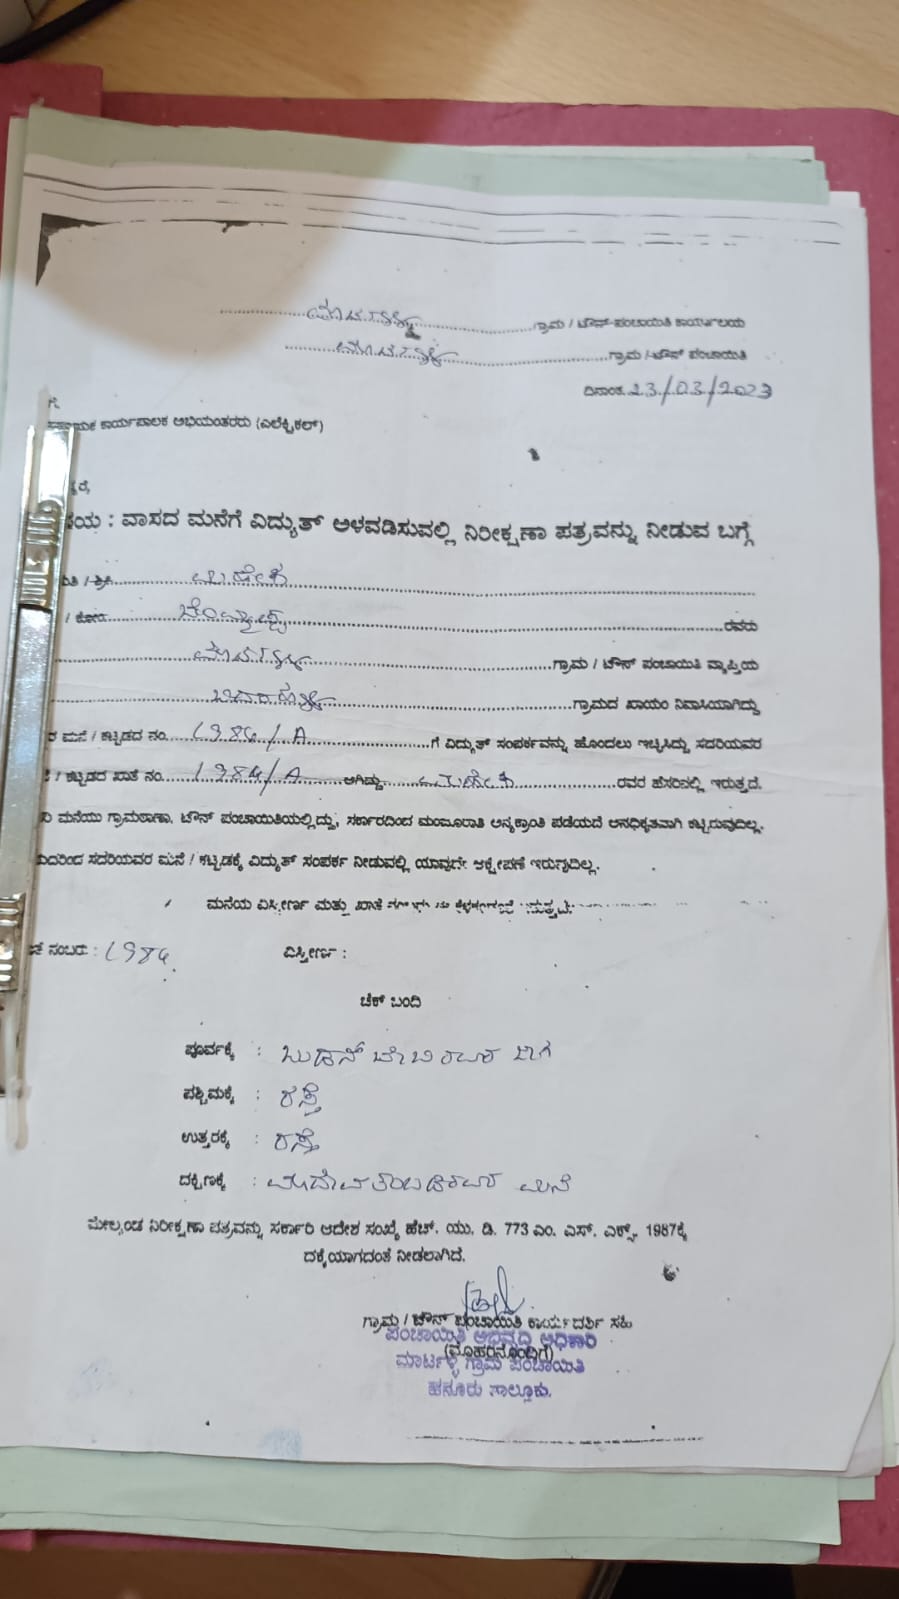 ಮಾರ್ಟಳ್ಳಿ ಗ್ರಾಮ / ಟೌನ್-ಪಂಚಾಯಿತಿ ಕಾರ್ಯಾಲಯ
ಮಾರ್ಟಳ್ಳಿ ಗ್ರಾಮ / ಟೌನ್ ಪಂಚಾಯಿತಿ
ದಿನಾಂಕ. 23/03/2023
ಗೆ,
ಸಹಾಯಕ ಕಾರ್ಯಪಾಲಕ ಅಭಿಯಂತರರು (ಎಲೆಕ್ಟ್ರಿಕಲ್)
ರೆ,
ಷಯ : ವಾಸದ ಮನೆಗೆ ವಿದ್ಯುತ್ ಅಳವಡಿಸುವಲ್ಲಿ ನಿರೀಕ್ಷಣಾ ಪತ್ರವನ್ನು ನೀಡುವ ಬಗ್ಗೆ
ತಿ / ಶ್ರೀ
/ ಕೋಂ ರವರು
ಮಾರ್ಟಳ್ಳಿ ಗ್ರಾಮ / ಟೌನ್ ಪಂಚಾಯಿತಿ ವ್ಯಾಪ್ತಿಯ
ಗ್ರಾಮದ ಖಾಯಂ ನಿವಾಸಿಯಾಗಿದ್ದು
ರ ಮನೆ / ಕಟ್ಟಡದ ನಂ. 1984/A ಗೆ ವಿದ್ಯುತ್ ಸಂಪರ್ಕವನ್ನು ಹೊಂದಲು ಇಚ್ಛಿಸಿದ್ದು ಸದರಿಯವರ
/ ಕಟ್ಟಡದ ಖಾತೆ ನಂ. 1984/A ಆಗಿದ್ದು ರವರ ಹೆಸರಿನಲ್ಲಿ ಇರುತ್ತದೆ.
ಮನೆಯು ಗ್ರಾಮಠಾಣಾ, ಟೌನ್ ಪಂಚಾಯಿತಿಯಲ್ಲಿದ್ದು, ಸರ್ಕಾರದಿಂದ ಮಂಜೂರಾತಿ ಅನ್ಯಕ್ರಾಂತಿ ಪಡೆಯದೆ ಅನಧಿಕೃತವಾಗಿ ಕಟ್ಟಿರುವುದಿಲ್ಲ.
ದರಿಂದ ಸದರಿಯವರ ಮನೆ / ಕಟ್ಟಡಕ್ಕೆ ವಿದ್ಯುತ್ ಸಂಪರ್ಕ ನೀಡುವಲ್ಲಿ ಯಾವುದೇ ಆಕ್ಷೇಪಣೆ ಇರುವುದಿಲ್ಲ.
ಮನೆಯ ವಿಸ್ತೀರ್ಣ ಮತ್ತು ಖಾತೆ
ನಂಬರು : 1984 ವಿಸ್ತೀರ್ಣ :
ಚೆಕ್ ಬಂದಿ
ಪೂರ್ವಕ್ಕೆ : ರವರ ಜಾಗ
ಪಶ್ಚಿಮಕ್ಕೆ : ರಸ್ತೆ
ಉತ್ತರಕ್ಕೆ : ರಸ್ತೆ
ದಕ್ಷಿಣಕ್ಕೆ : ಮನೆ
ಮೇಲ್ಕಂಡ ನಿರೀಕ್ಷಣಾ ಪತ್ರವನ್ನು ಸರ್ಕಾರಿ ಆದೇಶ ಸಂಖ್ಯೆ ಹೆಚ್. ಯು. ಡಿ. 773 ಎಂ. ಎಸ್. ಎಕ್ಸ್. 1987ಕ್ಕೆ
ದಕ್ಕೆಯಾಗದಂತೆ ನೀಡಲಾಗಿದೆ.
ಗ್ರಾಮ / ಟೌನ್ ಪಂಚಾಯಿತಿ ಕಾರ್ಯದರ್ಶಿ ಸಹಿ
ಪಂಚಾಯಿತಿ ಅಭಿವೃದ್ಧಿ ಅಧಿಕಾರಿ
(ಮೊಹರಿನೊಂದಿಗೆ)
ಮಾರ್ಟಳ್ಳಿ ಗ್ರಾಮ ಪಂಚಾಯಿತಿ
ಹನೂರು ತಾಲ್ಲೂಕು.